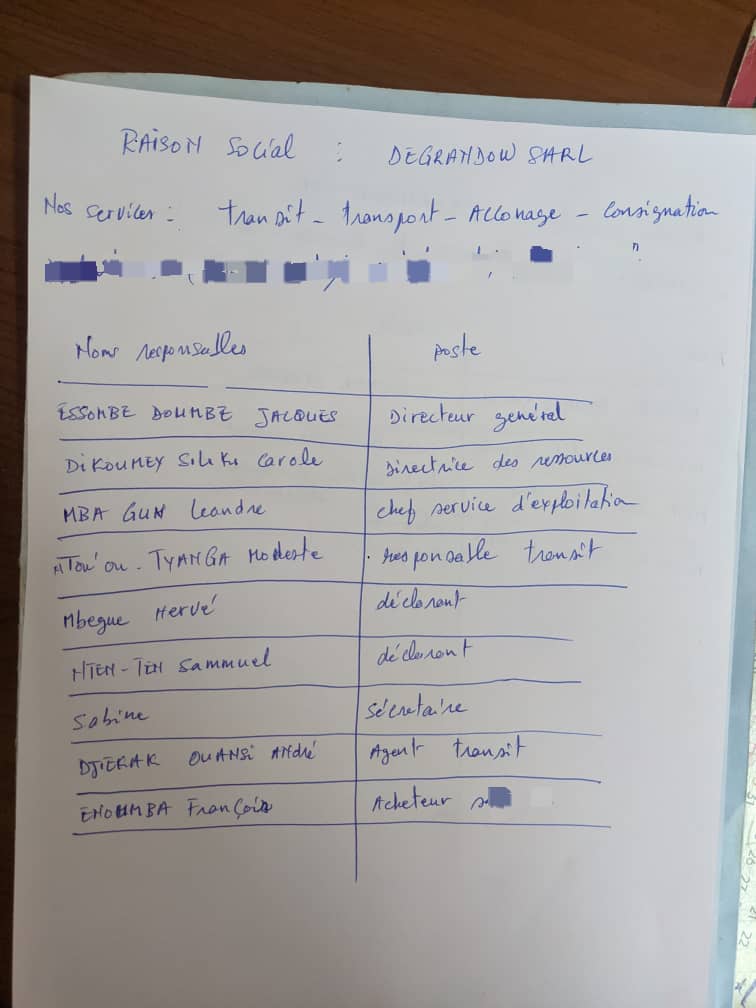 RAISON Social : DEGRANDOW SARL
Nos services : transit - transport - Acconage - Consignation
Noms responsables poste
ESSOMBE DOUMBE JACQUES Directeur général
DiKOUMEY Siliki Carole Directrice des ressources
MBA GUM Leandre chef service d'exploitation
TYANGA Modeste responsable transit
Mbegue Hervé déclarant
NTEN-TEN Sammuel déclarant
Sabine Sécretaire
DJIEKAK OUANSI André Agent transit
ENOUMBA François Acheteur